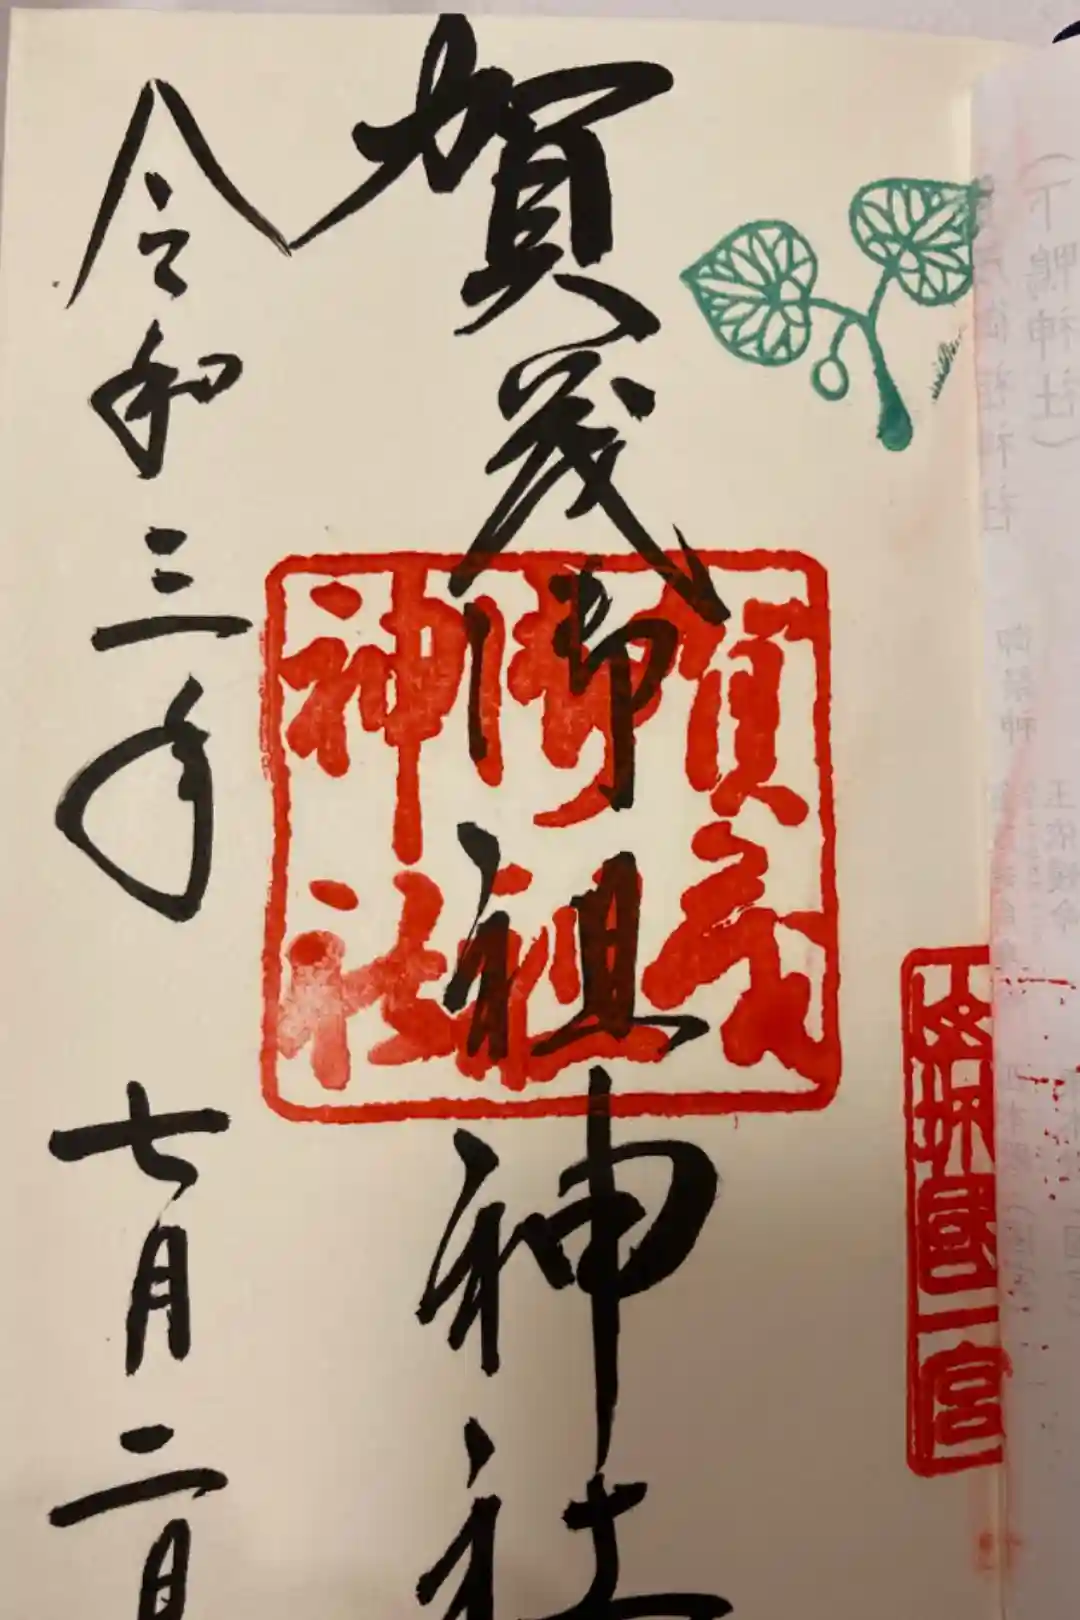 山城國一宮
賀茂御祖神社
賀茂
御祖
神社
令和三年 七月二日
(下鴨神社)